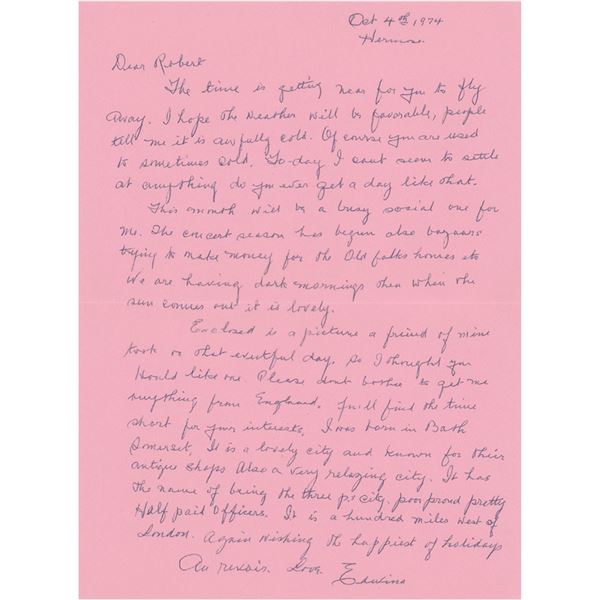 Oct 4th, 1974
Hermosa
Dear Robert
The time is getting near for you to fly
away. I hope the Weather will be favorable, people
tell me it is awfully cold. Of course you are used
to sometimes cold. To-day I cant seem to settle
at anything do you ever get a day like that.
This month will be a busy social one for
me. The concert season has begun also bazaars
trying to make money for the Old folks homes etc
We are having dark mornings then when the
sun comes out it is lovely.
Enclosed is a picture a friend of mine
took on that eventful day. So I thought you
Would like one. Please dont bother to get me
anything from England. You'll find the time
short for your interests. I was born in Bath
Somerset. It is a lovely city and known for their
antique shops Also a very relaxing city. It has
the name of being the three p's city. poor proud pretty
Half paid Officers. It is a hundred miles West of
London. Again wishing the happiest of holidays
Au revoir. Love. Edwina